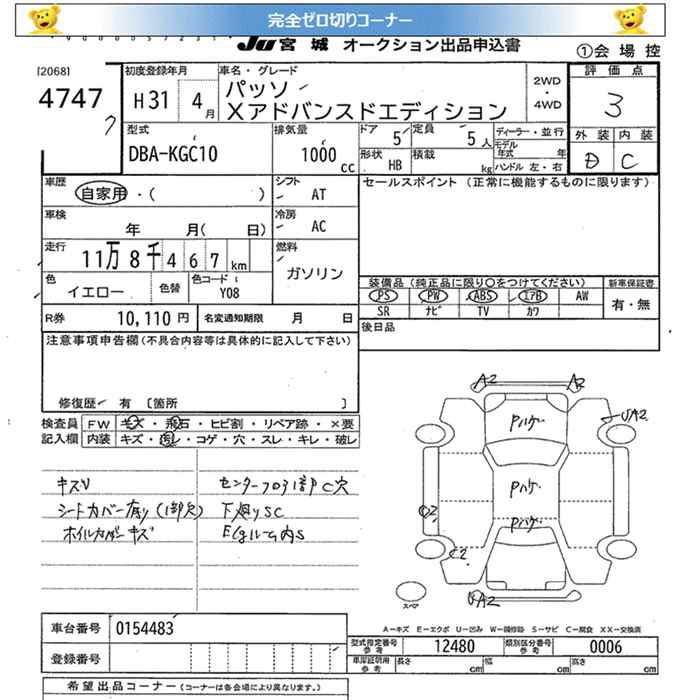 完全ゼロ切りコーナー
JU 宮城 オークション出品申込書
①会場控
[2068]
4747
初度登録年月
H31 4月
車名・グレード
パッソ
Xアドバンスドエディション
2WD
・
4WD
評価点
3
外装 内装
D C
型式
DBA-KGC10
排気量
1000 cc
ドア 5
定員 5人
形状 HB
積載 kg
ディーラー・並行
モデル年式 年
ハンドル 左・右
車歴
自家用・( )
シフト AT
セールスポイント (正常に機能するものに限ります)
車検 年 月( 日)
冷房 AC
走行 11万8千467km
燃料 ガソリン
色 イエロー 色替
色コード Y08
装備品 (純正品に限り○をつけてください)
PS PW ABS エアB AW
SR ナビ TV カワ
新車保証書
有・無
R券 10,110円
名変通知期限 月 日
後日品
注意事項申告欄(不具合内容等は具体的に記入して下さい)
修復歴 有 [箇所 ]
検査員記入欄
FW キズ・飛石・ヒビ割・リペア跡・×要
内装 キズ・汚れ・コゲ・穴・スレ・キレ・破レ
キズU
シートカバー有り(1部欠)
ホイルカバーキズ
センターフロアー部C穴
下廻りSC
Egルーム内S
A2
A2
Pハゲ
UA2
Pハゲ
U2
Pハゲ
C2
UA2
スペア
A-キズ E-エクボ U-凹み W-補修跡 S-サビ C-腐食 XX-交換済
車台番号 0154483
登録番号
型式指定番号参考 12480
類別区分番号参考 0006
車庫証明用参考 長さ cm 幅 cm 高さ cm
希望出品コーナー (コーナーは各会場により異なります。)